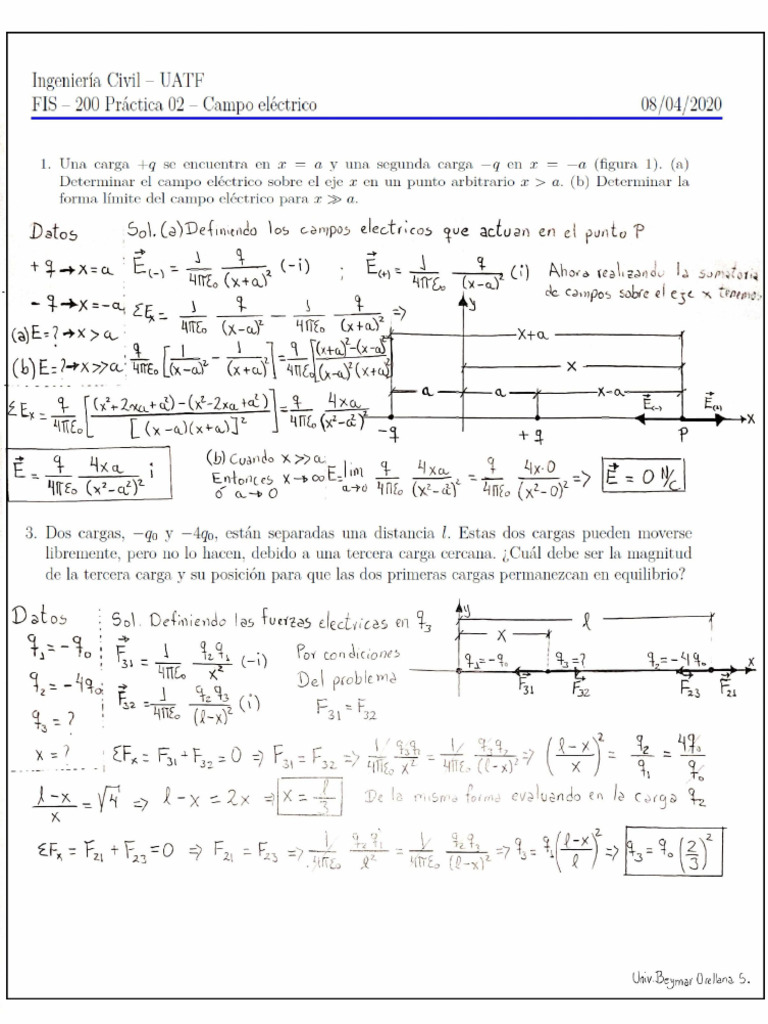 Ingeniería Civil – UATF
FIS – 200 Práctica 02 – Campo eléctrico 08/04/2020
1. Una carga +q se encuentra en x = a y una segunda carga −q en x = −a (figura 1). (a)
Determinar el campo eléctrico sobre el eje x en un punto arbitrario x > a. (b) Determinar la
forma límite del campo eléctrico para x ≫ a.
Datos
Sol. (a) Definiendo los campos electricos que actuan en el punto P
+q → x = a
E⃗(−) = 1/4πε₀ q/(x+a)² (−i) ; E⃗(+) = 1/4πε₀ q/(x−a)² (i)
Ahora realizando la sumatoria
de campos sobre el eje x tenemos
−q → x = −a
ΣEx = 1/4πε₀ q/(x−a)² − 1/4πε₀ q/(x+a)² =>
(a) E = ? → x > a
(b) E = ? → x >> a
q/4πε₀ [1/(x−a)² − 1/(x+a)²] = q/4πε₀ [(x+a)²−(x−a)²/(x−a)²(x+a)²]
y
x+a
x
a a x−a
E⃗(−) E⃗(+)
x
−q +q P
ΣEx = q/4πε₀ [(x²+2xa+a²)−(x²−2xa+a²)/[(x−a)(x+a)]²] = q/4πε₀ 4xa/(x²−a²)²
E⃗ = q/4πε₀ 4xa/(x²−a²)² i
(b) Cuando x >> a
Entonces x → ∞
ó a → 0
E = lim a→0 q/4πε₀ 4xa/(x²−a²)² = q/4πε₀ 4x·0/(x²−0)² => E⃗ = 0 N/C
3. Dos cargas, −q₀ y −4q₀, están separadas una distancia l. Estas dos cargas pueden moverse
libremente, pero no lo hacen, debido a una tercera carga cercana. ¿Cuál debe ser la magnitud
de la tercera carga y su posición para que las dos primeras cargas permanezcan en equilibrio?
Datos
Sol. Definiendo las fuerzas electricas en q₃
q₁ = −q₀
q₂ = −4q₀
q₃ = ?
x = ?
F⃗₃₁ = 1/4πε₀ q₂q₁/x² (−i)
F⃗₃₂ = 1/4πε₀ q₂q₃/(l−x)² (i)
Por condiciones
Del problema
F₃₁ = F₃₂
y
l
x
q₁=−q₀ q₃=? q₂=−4q₀ x
F⃗₃₁ F⃗₃₂ F⃗₂₃ F⃗₂₁
ΣFx = F₃₁ + F₃₂ = 0 => F₃₁ = F₃₂ => 1/4πε₀ q₃q₁/x² = 1/4πε₀ q₃q₂/(l−x)² => (l−x/x)² = q₂/q₁ = 4q₀/q₀
l−x/x = √4 => l−x = 2x => x = l/3
De la misma forma evaluando en la carga q₂
ΣFx = F₂₁ + F₂₃ = 0 => F₂₁ = F₂₃ => 1/4πε₀ q₂q₁/l² = 1/4πε₀ q₂q₃/(l−x)² => q₃ = q₁(l−x/l)² => q₃ = q₀(2/3)²
Univ. Beymar Orellana S.